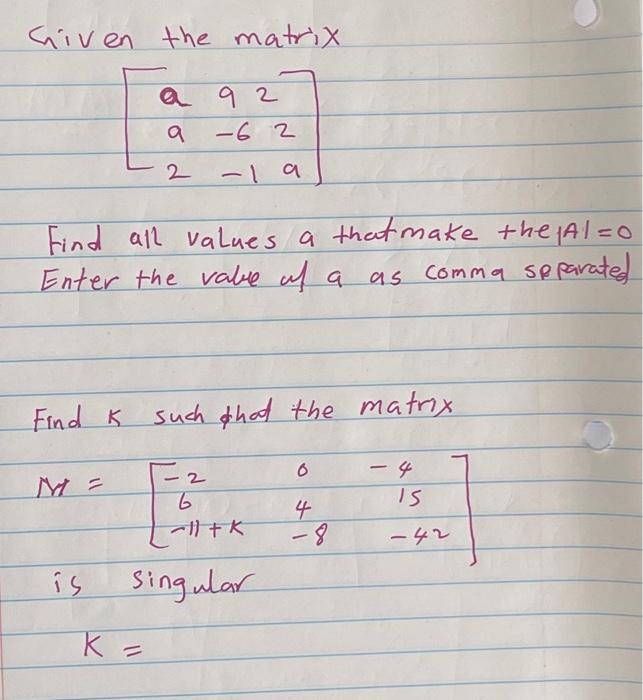 Given the matrix
a 9 2
a -6 2
2 -1 a
Find all values a that make the |A| = 0
Enter the value of a as comma separated
Find K such that the matrix
M = -2 0 -4
6 4 15
-11 + K -8 -42
is singular
K =